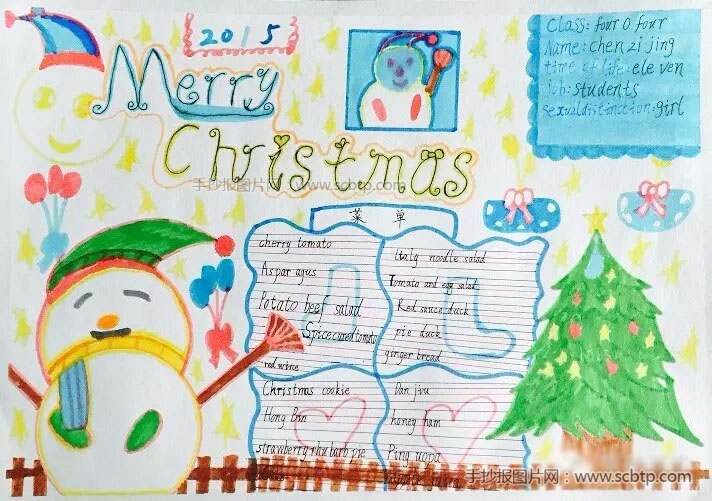 2015
Merry
Christmas
class: four 0 four
Name: chen zi jing
time of life: eleven
Job: students
sexual distinction: girl
手抄报图片网：www.scbtp.com
菜单
cherry tomato
Aspar agus
Potato beef salad
Spice cured tomato
red wine
Italy noodle salad
Tomato and egg salad
Red sauce duck
pie duck
ginger bread
Christmas cookie
Hong Bin
strawberry rhubarb pie
Dan jiu
honey ham
Ping uopa
手抄报图片网：www.scbtp.com